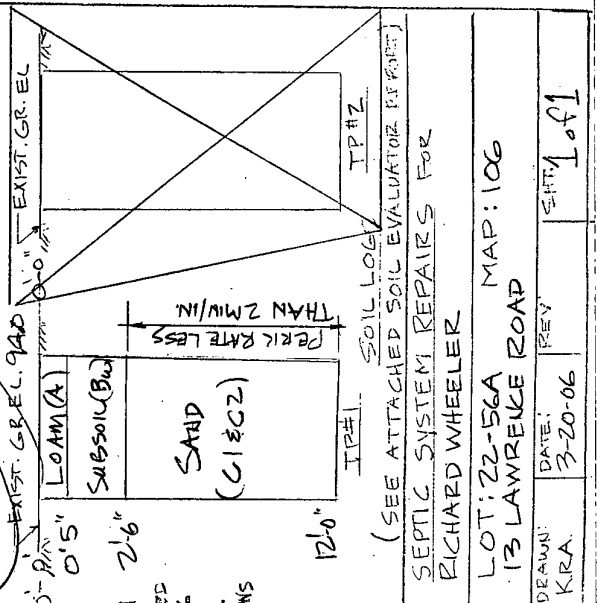 EXIST. GR. EL. 94.0
EXIST. GR. EL
0'-0"
0'5"
LOAM (A)
SUBSOIL (Bw)
2'-6"
SAND
(C1 & C2)
12'-0"
PERK RATE LESS
THAN 2 MIN/IN.
TP#1
TP#2
SOIL LOG
(SEE ATTACHED SOIL EVALUATOR REPORT)
SEPTIC SYSTEM REPAIRS FOR
RICHARD WHEELER
LOT: 22-56A MAP: 106
13 LAWRENCE ROAD
DRAWN: KRA.
DATE: 3-20-06
REV:
SHT: 1 of 1